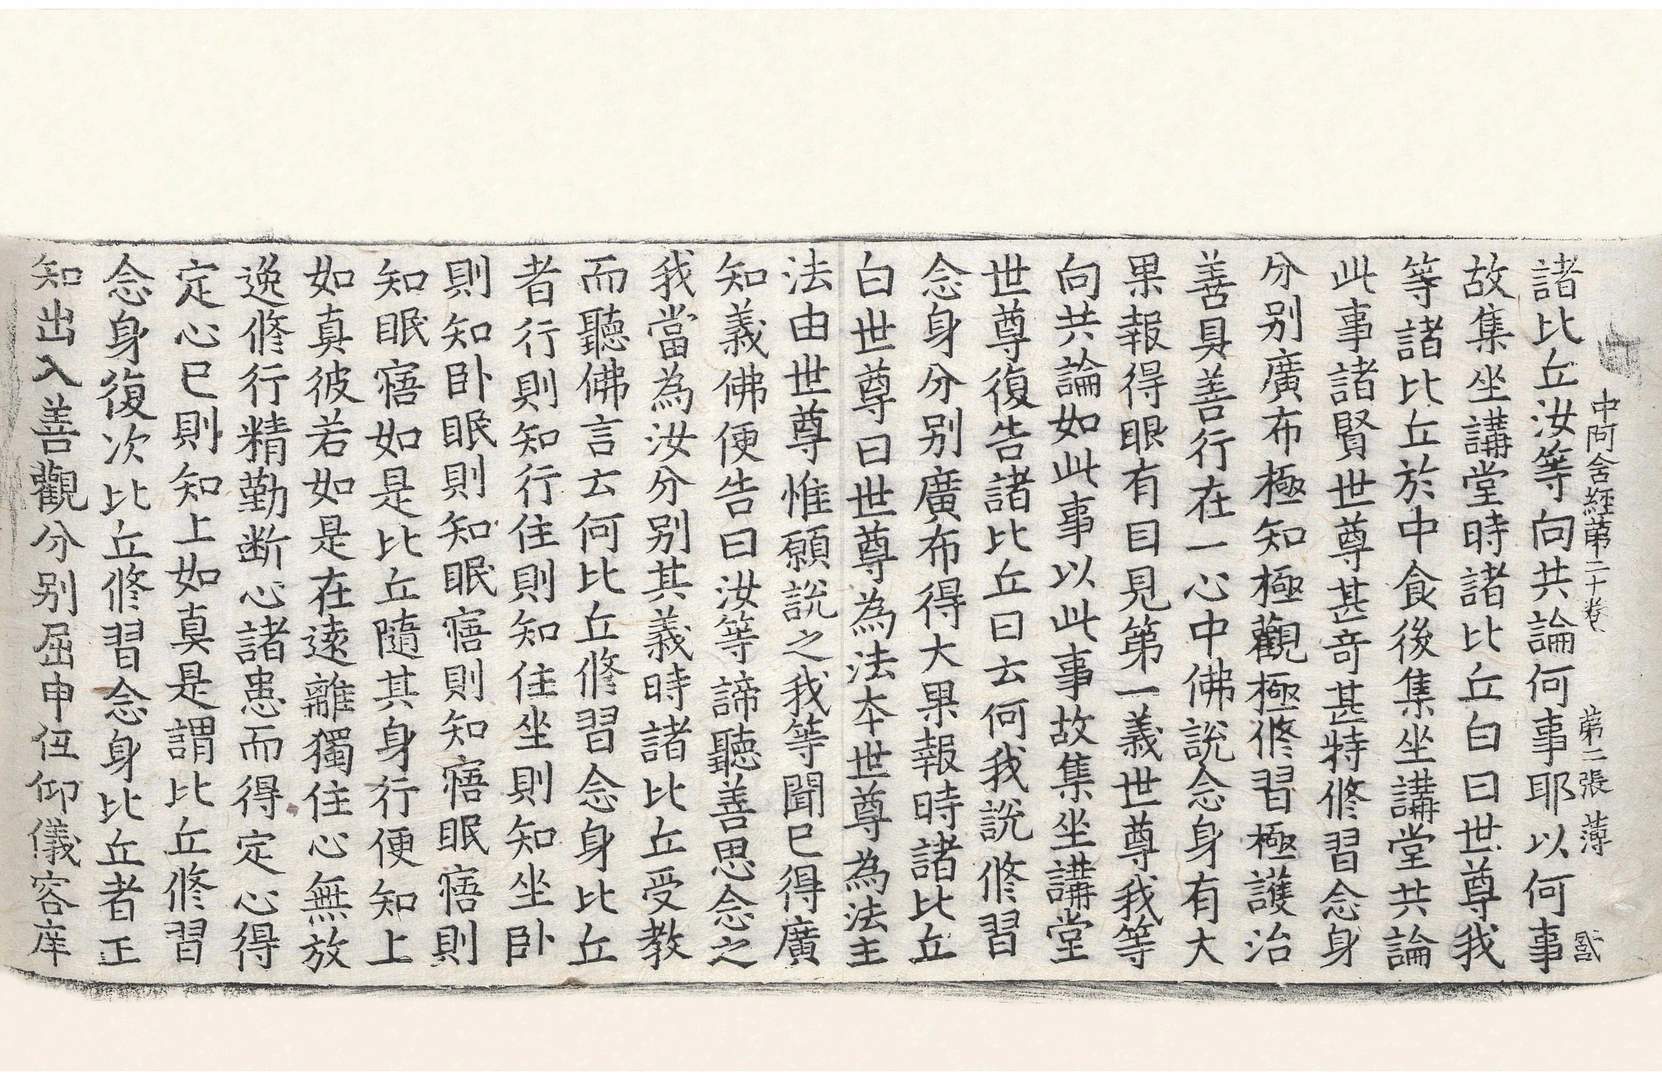 中阿含経苐二十卷 苐二張 薄
諸比丘汝等向共論何事耶以何事
故集坐講堂時諸比丘白曰世尊我
等諸比丘於中食後集坐講堂共論
此事諸賢世尊甚奇甚特修習念身
分别廣布極知極觀極修習極護治
善具善行在一心中佛說念身有大
果報得眼有目見第一義世尊我等
向共論如此事以此事故集坐講堂
世尊復告諸比丘曰云何我說修習
念身分别廣布得大果報時諸比丘
白世尊曰世尊為法本世尊為法主
法由世尊惟願說之我等聞已得廣
知義佛便告曰汝等諦聽善思念之
我當為汝分别其義時諸比丘受教
而聽佛言云何比丘修習念身比丘
者行則知行住則知住坐則知坐卧
則知卧眠則知眠寤則知寤眠寤則
知眠寤如是比丘隨其身行便知上
如真彼若如是在遠離獨住心無放
逸修行精勤断心諸患而得定心得
定心已則知上如真是謂比丘修習
念身復次比丘修習念身比丘者正
知出入善觀分别屈申伍仰儀容庠